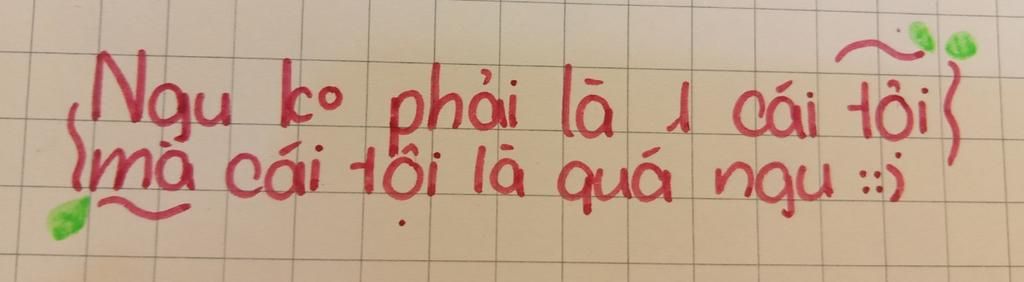 Ngu ko phải là 1 cái tôi
mà cái tội là quá ngu ::)